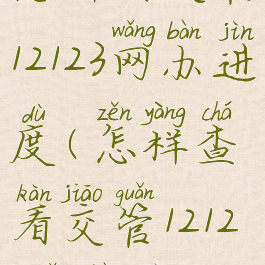 wǎng bàn jìn
12123网办进
dù zěn yàng chá
度(怎样查
kàn jiāo guǎn
看交管1212